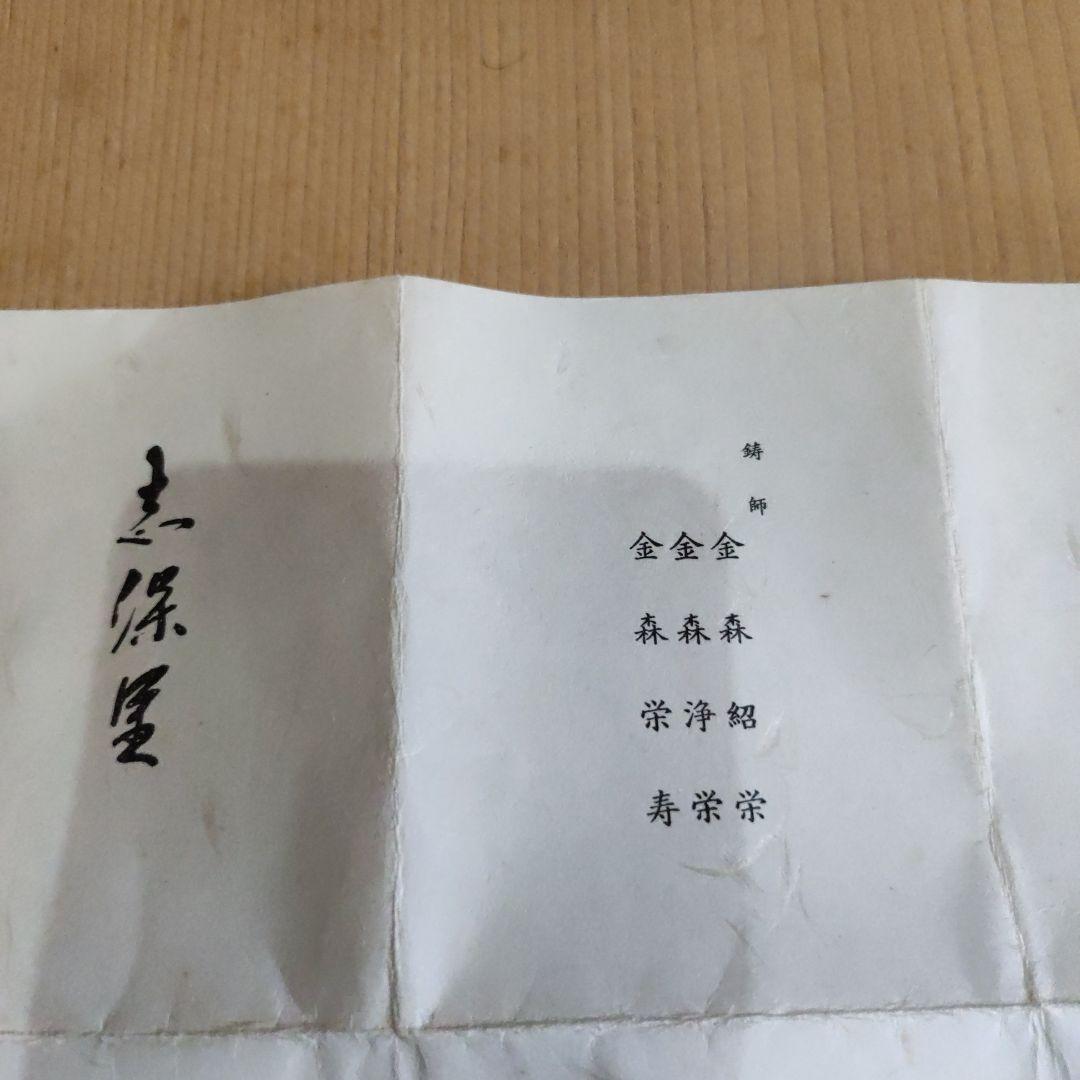 鋳師
金森紹栄
金森浄栄
金森栄寿
志保里